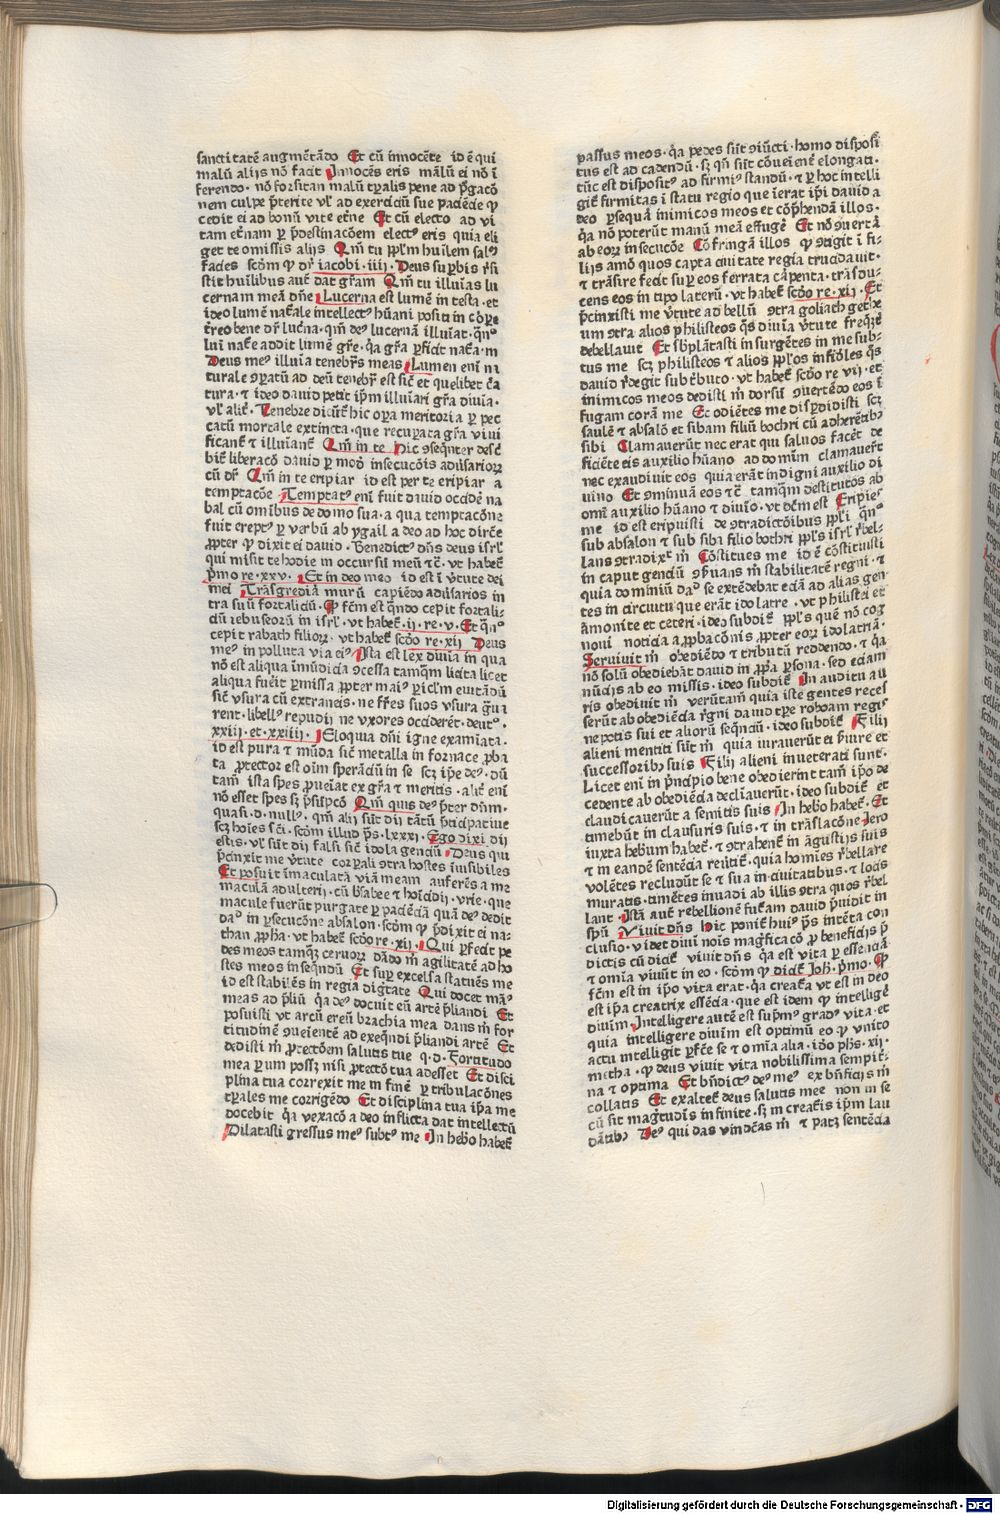 sanctitatē augmētādo Et cū innocēte id ē qui
malū alijs nō facit Innocēs eris malū ei nō ī
ferendo · nō forsitan malū tp̄alis pene ad p̄gacō
nem culpe p̄terite vl̓ ad exerciciū sue paciēcie ꝙ
cedit ei ad bonū vite et̓ne Et cū electo ad vi
tam et̓nam ꝑ p̄destinacōem elect⁹ eris quia eli
get te omissis alijs Qm̄ tu ppl̓m hūilem sal⁹
facies scd̓m ꝙ dr̓ iacobi · iiij · Deus suꝑbis r̓si
stit hūilibus aut̄ dat gr̄am Qm̄ tu illuīas lu
cernam meā dn̄e Lucerna est lumē in testa · et
ideo lumē nat̓ale intellect⁹ hūani posita in cōrꝑe
t̓reo bene dr̓ luc̓na · qm̄ de⁹ lucernā illuīat · qn̄o
lui nat̓e addit lumē gr̄e · q̓a gr̄a ꝑficit nat̓a · m
Deus me⁹ illuīa tenebr̄s meas Lumen enī na
turale ꝯꝑatū ad deū tenebr̄ est sic̄ et quelibet c̓a
tura · ⁊ ideo dauid petit ip̄m illuīari gr̄a diuīa ·
vl̓ alit̓ · Tenebre dicūt̓ hic oꝑa meritoria ꝑ pec
catū mortale extincta · que recuꝑata gr̄a viui
ficant̓ ⁊ illuīant̓ Qm̄ in te Hic ꝯseqn̄ter desc̓
bit̓ liberacō dauid ꝑ modū insecucōis aduīsarioꝝ
cū dr̓ Qm̄ in te eripiar id est per te eripiar a
temptacōe Temptat⁹ enī fuit dauid occidēe na
bal cū omībus de domo sua · a qua temptacōne
fuit erept⁹ ꝑ verbū abygail a deo ad hoc dirc̄e
ꝓpter ꝙ dixit ei dauid · Benedict⁹ dn̄s deus isrl̓
qui misit te hodie in occursū meū ⁊c̄ · vt habet̓
p̄mo re · xxv · Et in deo meo id est ī v̓tute dei
mei Trāsgrediā murū capiēdo aduīsarios in
tra suū fortaliciū · Ꝙ fc̄m est qn̄do cepit fortali
ciū iebuseorū in isrl̓ · vt habet̓ · ij · re · v · Et qn̄o
cepit rabach filioꝝ · vt habet̓ scd̓o re · xij Deus
me⁹ in polluta via ei⁹ Ista est lex diuīa in qua
nō est aliqua īmūdicia ꝯcessa tamqm̄ licita licet
aliqua fuēit ꝑmissa ꝓpter mai⁹ ꝑicl̓m euitādū
sic̄ vsura cū extraneis · ne fr̄es suos vsura g̓ua
rent · libell⁹ repudij ne vxores occiderēt · deut⁰ ·
xxiij · et · xxiiij · Eloquia dn̄i igne examīata ·
id est pura ⁊ mūda sic̄ metalla in fornace ꝓba
ta ꝓtector est oīm sperāciū in se scꝫ ip̄e de⁹ · dū
tam̄ ista spes ꝓueīat ex gr̄a ⁊ meritis · alit̓ enī
nō esset spes sꝫ p̄sūpcō Qm̄ quis de⁹ p̄ter dn̄m ·
quasi · d · null⁹ · qm̄ alij sūt dij tātū ꝑticipatiue
scꝫ hoīes sc̄i · scd̓m illud ps̄ · lxxxi · Ego dixi dij
estis · vl̓ sūt dij falsi sic̄ idola genciū Deus qui
p̄cinxit me v̓tute corꝑali ꝯtra hostes īuisibiles
Et posuit īmaculatā viā meam auferēs a me
maculā adulterij · cū bʳsabee ⁊ hoīcidij · vrie · que
macule fuerūt purgate ꝑ paciēciā quā de⁹ dedit
da⁰ in ꝑsecucōne absalon · scd̓m ꝙ p̄dixit ei na
than ꝓph̓a · vt habet̓ scd̓o re · xij · Qui ꝑfecit pe
des meos tamqꝫ ceruoꝝ dādo m̄ agilitatē ad ho
stes meos inseqn̄dū Et suꝑ excelsa statuēs me
id est stabilēs in regia dig̓tate Qui docet ma⁹
meas ad p̄liū q̓a de⁹ docuit eū artē p̄liandi Et
posuisti vt arcū ereū bzachia mea dans m̄ for
titudinē ꝯueīentē ad exeqn̄di p̄liandi artē Et
dedisti m̄ ꝓtectōem salutis tue q · d · Fortitudo
mea ꝑum possꝫ nisi ꝓtectō tua adesset Et disci
plina tua correxit me in finē ꝑ tribulacōnes
tꝑales me corrigēdo Et disciplina tua ip̄a me
docebit q̓a vexacō a deo inflicta dat intellectū
Dilatasti gressus me⁹ subt⁹ me In heb̓o habet̓
passus meos · q̓a pedes sūt ꝯiūcti · homo disposi
tus est ad cadendū · sꝫ qn̄ sūt cōueīent̓ elongati ·
tūc est disposit⁹ ad firmi⁹ standū · ⁊ ꝑ hoc intelli
git̓ firmitas ī statu regio que īerat ip̄i dauid a
deo ꝑsequar inimicos meos et cōp̄hendā illos ·
q̓a nō poterūt manū meā effug̓e Et nō ꝯuertar
ab eoꝝ insecucōe Cōfringā illos ꝙ ꝯtigit ī fi
lijs amō quos capta ciuitate regia trucidauit ·
⁊ trāsire fecit suꝑ eos ferrata carpenta · trāsdu
cens eos in tipo laterū · vt habet̓ scd̓o re · xij · Et
p̄cinxisti me v̓tute ad bellū ꝯtra goliath gethe
um ꝯtra alios philisteos qꝫ diuīa v̓tute freqn̄t̓
debellauit Et sb̓plātasti insurgētes in me sub
tus me scꝫ philisteos ⁊ alios ppl̓os infid̓les qꝫ
dauid r̓degit sub t̓buto · vt habet̓ scd̓o re vij · et
inimicos meos dedisti m̄ dorsū ꝯuertēdo eos ī
fugam corā me Et odiētes me disꝑdidisti scꝫ
saulē ⁊ absalō et sibam filiū bochri cū adherētibꝫ
sibi Clamauerūt nec erat qui saluos facēt de
ficiēte eis auxilio hūano ad domīm clamauer̄t
nec exaudiuit eos quia erāt indigni auxilio di
uino Et ꝯminuā eos ⁊c̄ tamqm̄ destitutos ab
omi auxilio hūano ⁊ diuīo · vt dc̄m est Eripies
me id est eripuisti de ꝯtradictōibus ppl̓i qn̄o
sub absalon ⁊ sub siba filio bochri ppl̓s isrl̓ r̓bel
lans ꝯtradixt m̄ Cōstitues me id ē cōstituisti
in caput genciū ꝯp̄uans m̄ stabilitatē regni · ⁊
quia dominiū da⁰ se extēdebat eciā ad alias gen
tes in circuitu que erāt idolatre · vt philistei et
āmonite et ceteri · ideo subdit̓ ppl̓s quē nō cog
noui noticia aꝓbacōnis ꝓpter eoꝝ idolatriā ·
Seruiuit m̄ obediēdo ⁊ tributū reddendo · ⁊ q̓a
nō solū obediebāt dauid in ꝓp̓a ꝑsona · sed eciam
nūcijs ab eo missis · ideo subdit̓ In auditu au
ris obediuit m̄ verūtam̄ quia iste gentes reces
serūt ab obediēcia r̓gni dauid tꝑe roboam regis
nepotis sui et aliorū seqn̄ciū · ideo subdit̓ Filij
alieni mentiti sūt m̄ quia iurauerūt ei p̓iure et
successoribꝫ suis Filij alieni inueterati sunt ·
Licet enī in p̄ncipio bene obedierint tam̄ ip̄o de
cedente ab obediēcia declīauerūt · ideo subdit̓ et
claudicauerūt a semitis suis In heb̓o habet̓ · Et
timebūt in clausuris suis · ⁊ in trāslacōne Jero
iuxta hebūm habet̓ · ⁊ ꝯtrahent̓ in āgustijs suis
⁊ in eandē sentēcia reuīt̓ · quia homies r̓bellare
volētes recludūt se ⁊ sua in ciuitatibus · ⁊ locis
muratis · timētes inuadi ab illis ꝯtra quos r̓bel
lant · Istā aut̄ rebellionē fut̓am dauid p̄uidit in
spū Viuit dn̄s Hic ponit̓ hui⁹ ps̄ intēta con
clusio · videt̓ diuī noīs mag̓ficacō ꝓ beneficijs p̄
dictis cū dicit̓ viuit dn̄s q̓a est vita ꝑ essenciā ·
⁊ omīa viuūt in eo · scd̓m ꝙ dicit̓ Joh̓ · p̄mo · Ꝙ
fc̄m est in ip̄o vita erat · q̓a creat̓a vt est in deo
est ip̄a creatrix essēcia · que est idem ꝙ intellig̓e
diuīm · Intelligere autē est sup̄m⁹ grad⁹ vita · et
quia intelligere diuīm est optimū eo ꝙ vnico
actu intelligit ꝑfc̄e se ⁊ omīa alia · ido phs̄ · xij ·
metha · ꝙ deus viuit vita nobilissima sempit̓
na ⁊ optima Et bn̄dict⁹ de⁹ me⁹ ex bn̄ficijs m̄
collatis Et exaltet̓ deus salutis mee non in se
cū sit mag̓tudīs infinite · sꝫ in creat̓is ip̄m lau
dātibꝫ De⁹ qui das vindc̄as m̄ ⁊ patꝫ sentēcia
Digitalisierung gefördert durch die Deutsche Forschungsgemeinschaft - DFG